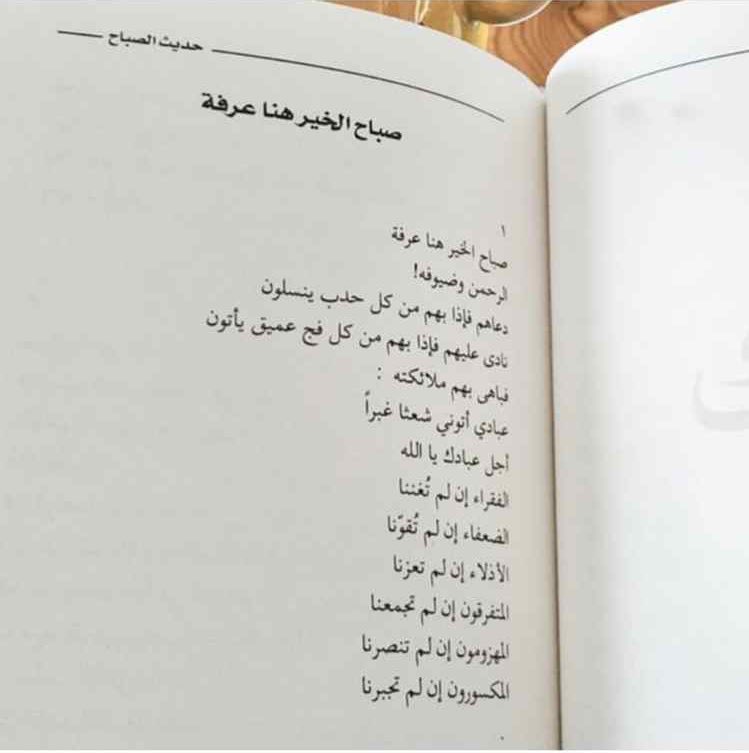 حديث الصباح
صباح الخير هنا عرفة
١
صباح الخير هنا عرفة
الرحمن وضيوفه!
دعاهم فإذا بهم من كل حدب ينسلون
نادى عليهم فإذا بهم من كل فج عميق يأتون
فباهى بهم ملائكته :
عبادي أتوني شعثا غبراً
أجل عبادك يا الله
الفقراء إن لم تُغننا
الضعفاء إن لم تُقوّنا
الأذلاء إن لم تعزنا
المتفرقون إن لم تجمعنا
المهزومون إن لم تنصرنا
المكسورون إن لم تجبرنا
.